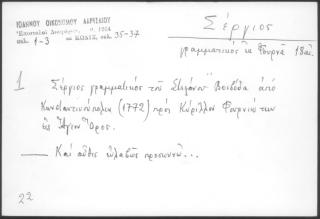 ΙΩΑΝΝΟΥ ΟΙΚΟΝΟΜΟΥ ΛΑΡΙΣΑΙΟΥ
"Επιστολαί Διαφόρων", 1964
σελ. 1-3 = ΚΩΔΙΞ, σελ. 35-37
Σέργιος
γραμματικός ἐκ Φουρνᾶ 18 αἰ.
1
Σέργιος γραμματικός τοῦ Στεφάνου Βοεβόδα ἀπό
Κωνσταντινούπολιν (1772) πρός Κύριλλον Φουρνιώτην
εἰς Ἅγιον Ὄρος.
Καί αὖθις εὐλαβῶς προσκυνῶ...
22